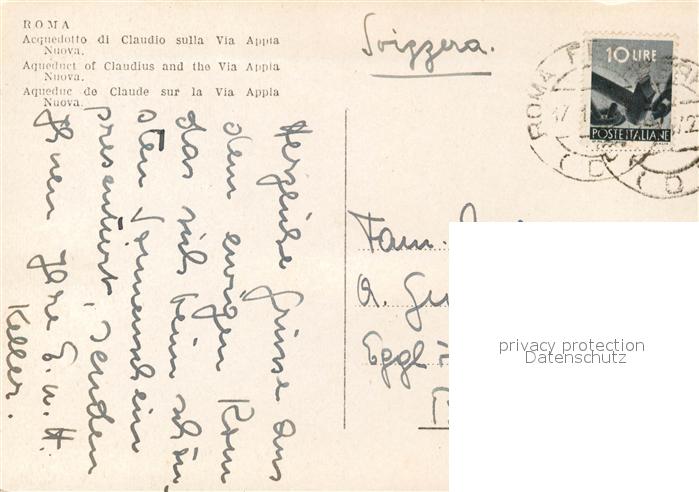 ROMA
Acquedotto di Claudio sulla Via Appia
Nuova.
Aqueduct of Claudius and the Via Appia
Nuova.
Aqueduc de Claude sur la Via Appia
Nuova.
Svizzera.
10 LIRE
POSTE ITALIANE
ROMA
Herzliche Grüsse aus
dem ewigen Rom
das sich beim schön
sten Sonnenschein
präsentiert, senden
Ihnen Ihre E. u. H.
Keller.
Fam.
A.
privacy protection
Datenschutz